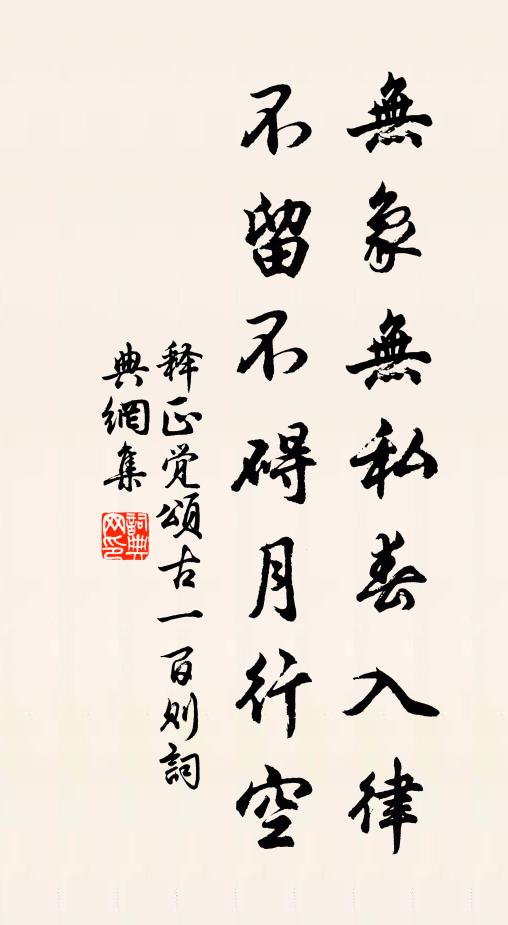 無象無私春入律
不留不碍月行空
释正觉頌古一百则詞
典網集
詞典
网印